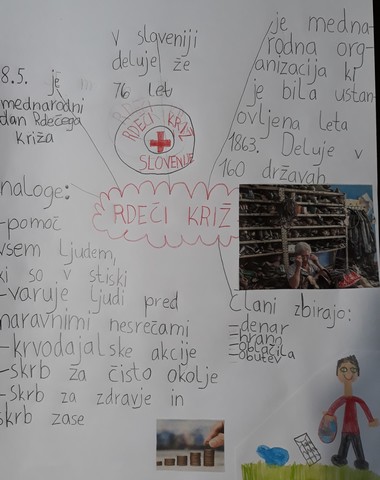 v sloveniji
deluje že
76 let
je medna-
rodna org-
anizacija ki
je bila ustan-
ovljena leta
1863. Deluje v
160 državah
8.5. je
mednarodni
dan Rdečega
Križa
RDEČI KRIŽ
SLOVENIJE
RDEČI KRIŽ
naloge:
-pomoč
vsem ljudem,
ki so v stiski
-varuje ljudi pred
naravnimi nesrečami
-krvodajalske akcije
-skrb za čisto okolje
-skrb za zdravje in
skrb zase
Člani zbirajo:
-denar
-hrano
-oblačila
-obutev